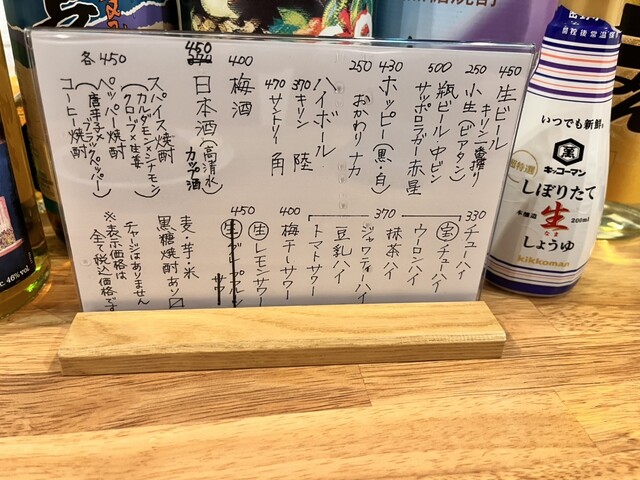 450
生ビール
キリン一番搾り
250
小生(ビアタン)
500
瓶ビール中ビン
サッポロラガー赤星
430
ホッピー(黒・白)
250
おかわりナカ
ハイボール
370
キリン 陸
470
サントリー 角
400
梅酒
450
日本酒(高清水)
カップ酒
各450
スパイス焼酎
(カルダモン×シナモン
クローブ×生姜
ペッパー焼酎
(唐辛子×ブラックペッパー)
コーヒー焼酎
330
チューハイ
370
チューハイ
ウーロンハイ
抹茶ハイ
ジャワティーハイ
豆乳ハイ
トマトサワー
400
梅干サワー
450
生レモンサワー
麦・芋・米
黒糖焼酎あり〼
チャージはありません
※表示価格は
全て税込価格です
いつでも新鮮
超特選
キッコーマン
しぼりたて
本醸造
生
なま
200ml
しょうゆ
kikkoman
開栓後常温保存
46%vol